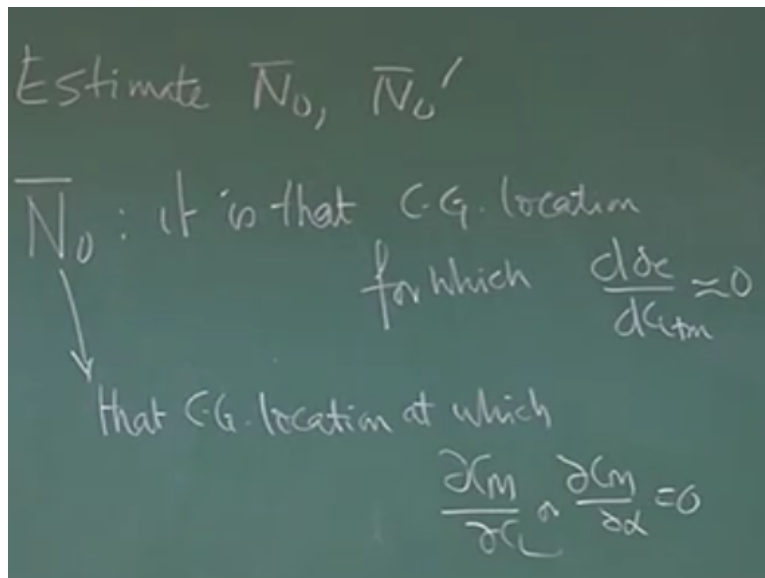 Estimate N̄₀, N̄₀′
N̄₀ : it is that C.G. location
for which dδe/dCLtrim ≈ 0
that C.G. location at which
∂CM/∂CL or ∂CM/∂α = 0